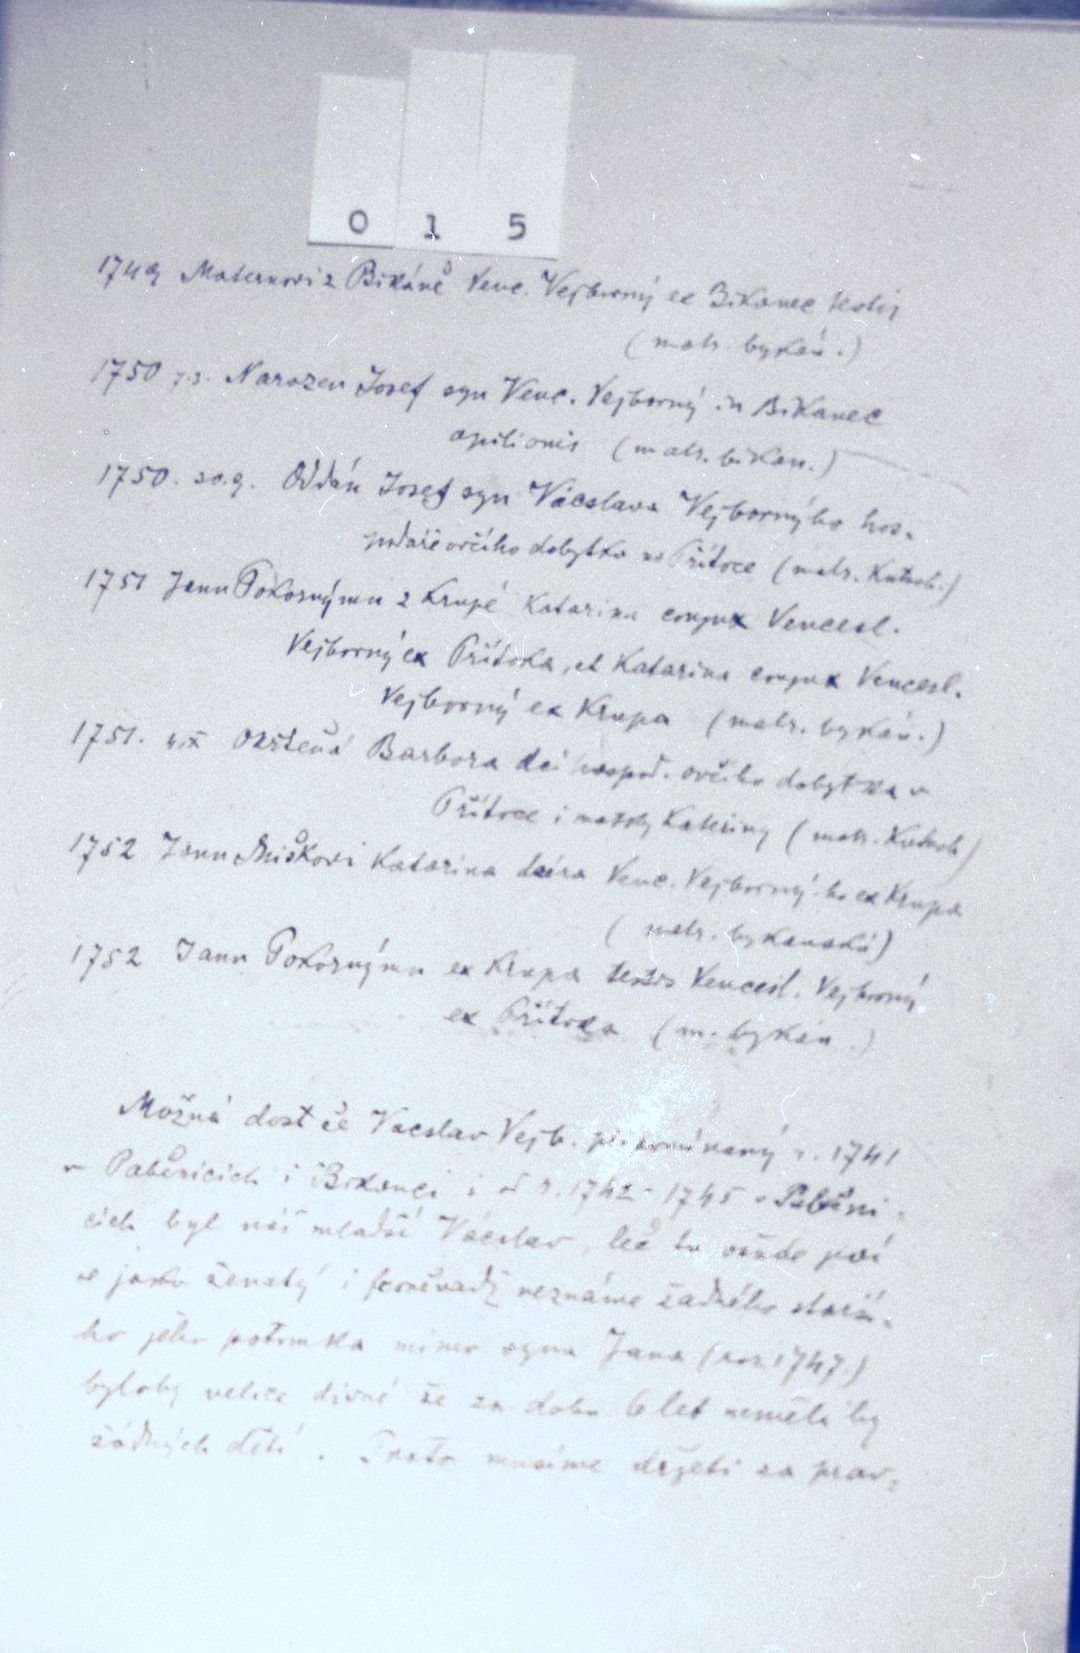 0 1 5
1749 Maternovi z Bikáně Venc. Vejborný ex Bikanec testis
(matr. bykáň.)
1750 7.3. Narozen Josef syn Venc. Vejborný in Bikanec
opilionis (matr. bikan.)
1750. 20.9. Oddán Josef syn Václava Vejborného hos-
podáře ovčího dobytka na Přítoce (matr. Kutnoh.)
1751 Janu Pokornýmu z Krupé Katarina conjux Vencesl.
Vejborný ex Přítoka, et Katarina conjux Vencesl.
Vejborný ex Krupa (matr. bykáň.)
1751. Okřtěná Barbora dci hospod. ovčího dobytka v
Přítoce i matky Kateřiny (matr. Kutnoh)
1752 Janu Miškovi Katarina dcera Venc. Vejborný-ho ex Krupa
(matr. bykanská)
1752 Janu Pokornýmu ex Krupa testis Vencesl. Vejborný
ex Přítoka (m. bykáň.)
Možná dost že Václav Vejb. připomínaný r. 1741
v Paběnicích i Bikanci i od r. 1742 - 1745 v Paběni-
cích byl náš mladší Václav, leč tu všude praví
se jako ženatý i poněvadž neznáme žádného starší-
ho jeho potomka mimo syna Jana (nar. 1747.)
byloby velice divné že za dobu 6 let neměla by
žádných dětí. Proto musíme držeti za prav-